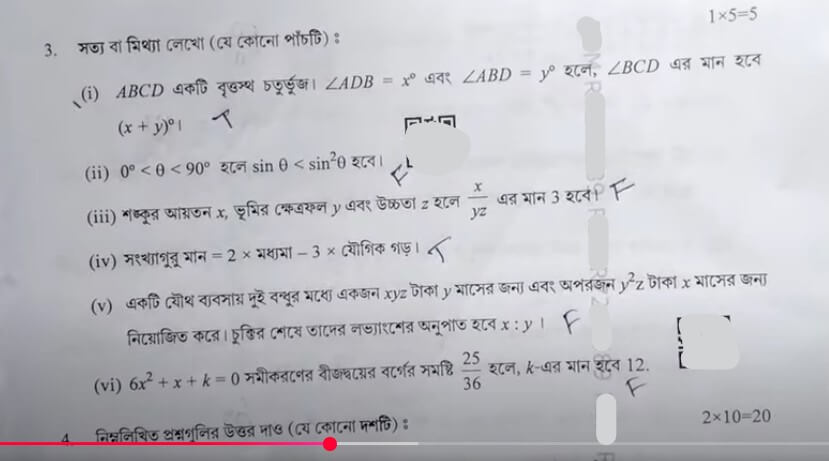 1×5=5
3. সত্য বা মিথ্যা লেখো (যে কোনো পাঁচটি) :
(i) ABCD একটি বৃত্তস্থ চতুর্ভুজ। ∠ADB = x° এবং ∠ABD = y° হলে, ∠BCD এর মান হবে
(x + y)°। T
(ii) 0° < θ < 90° হলে sin θ < sin²θ হবে। F
(iii) শঙ্কুর আয়তন x, ভূমির ক্ষেত্রফল y এবং উচ্চতা z হলে x/yz এর মান 3 হবে। F
(iv) সংখ্যাগুরু মান = 2 × মধ্যমা − 3 × যৌগিক গড়। T
(v) একটি যৌথ ব্যবসায় দুই বন্ধুর মধ্যে একজন xyz টাকা y মাসের জন্য এবং অপরজন y²z টাকা x মাসের জন্য
নিয়োজিত করে। চুক্তির শেষে তাদের লভ্যাংশের অনুপাত হবে x : y । F
(vi) 6x² + x + k = 0 সমীকরণের বীজদ্বয়ের বর্গের সমষ্টি 25/36 হলে, k-এর মান হবে 12. F
4. নিম্নলিখিত প্রশ্নগুলির উত্তর দাও (যে কোনো দশটি) : 2×10=20